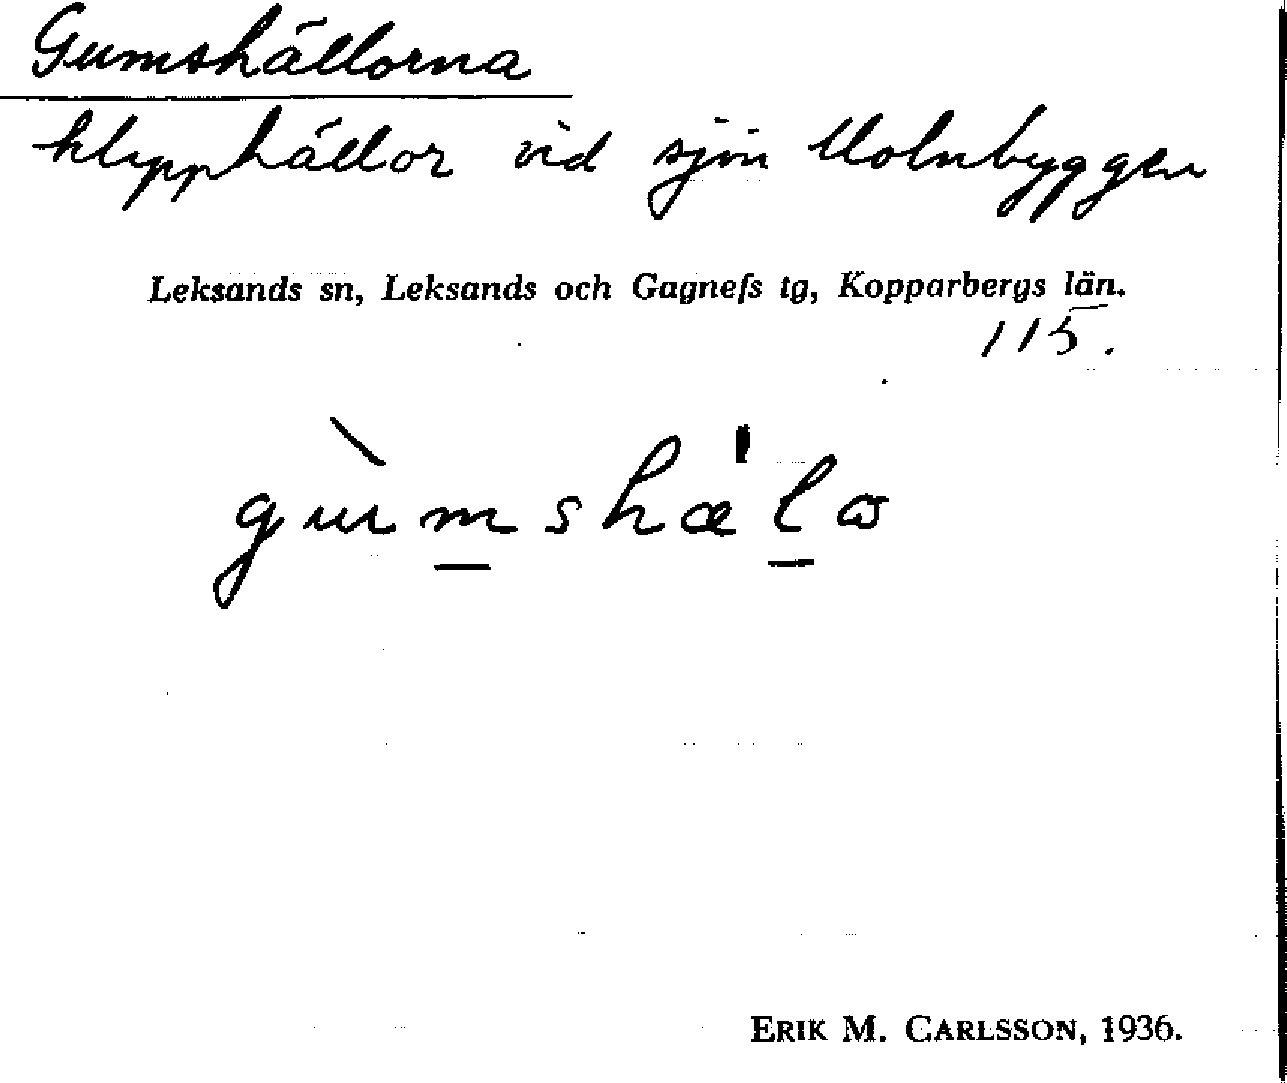 Gumshällorna
klipphällor vid sjön Molnbyggen
Leksands sn, Leksands och Gagnefs tg, Kopparbergs län.
115.
ERIK M. CARLSSON, 1936.